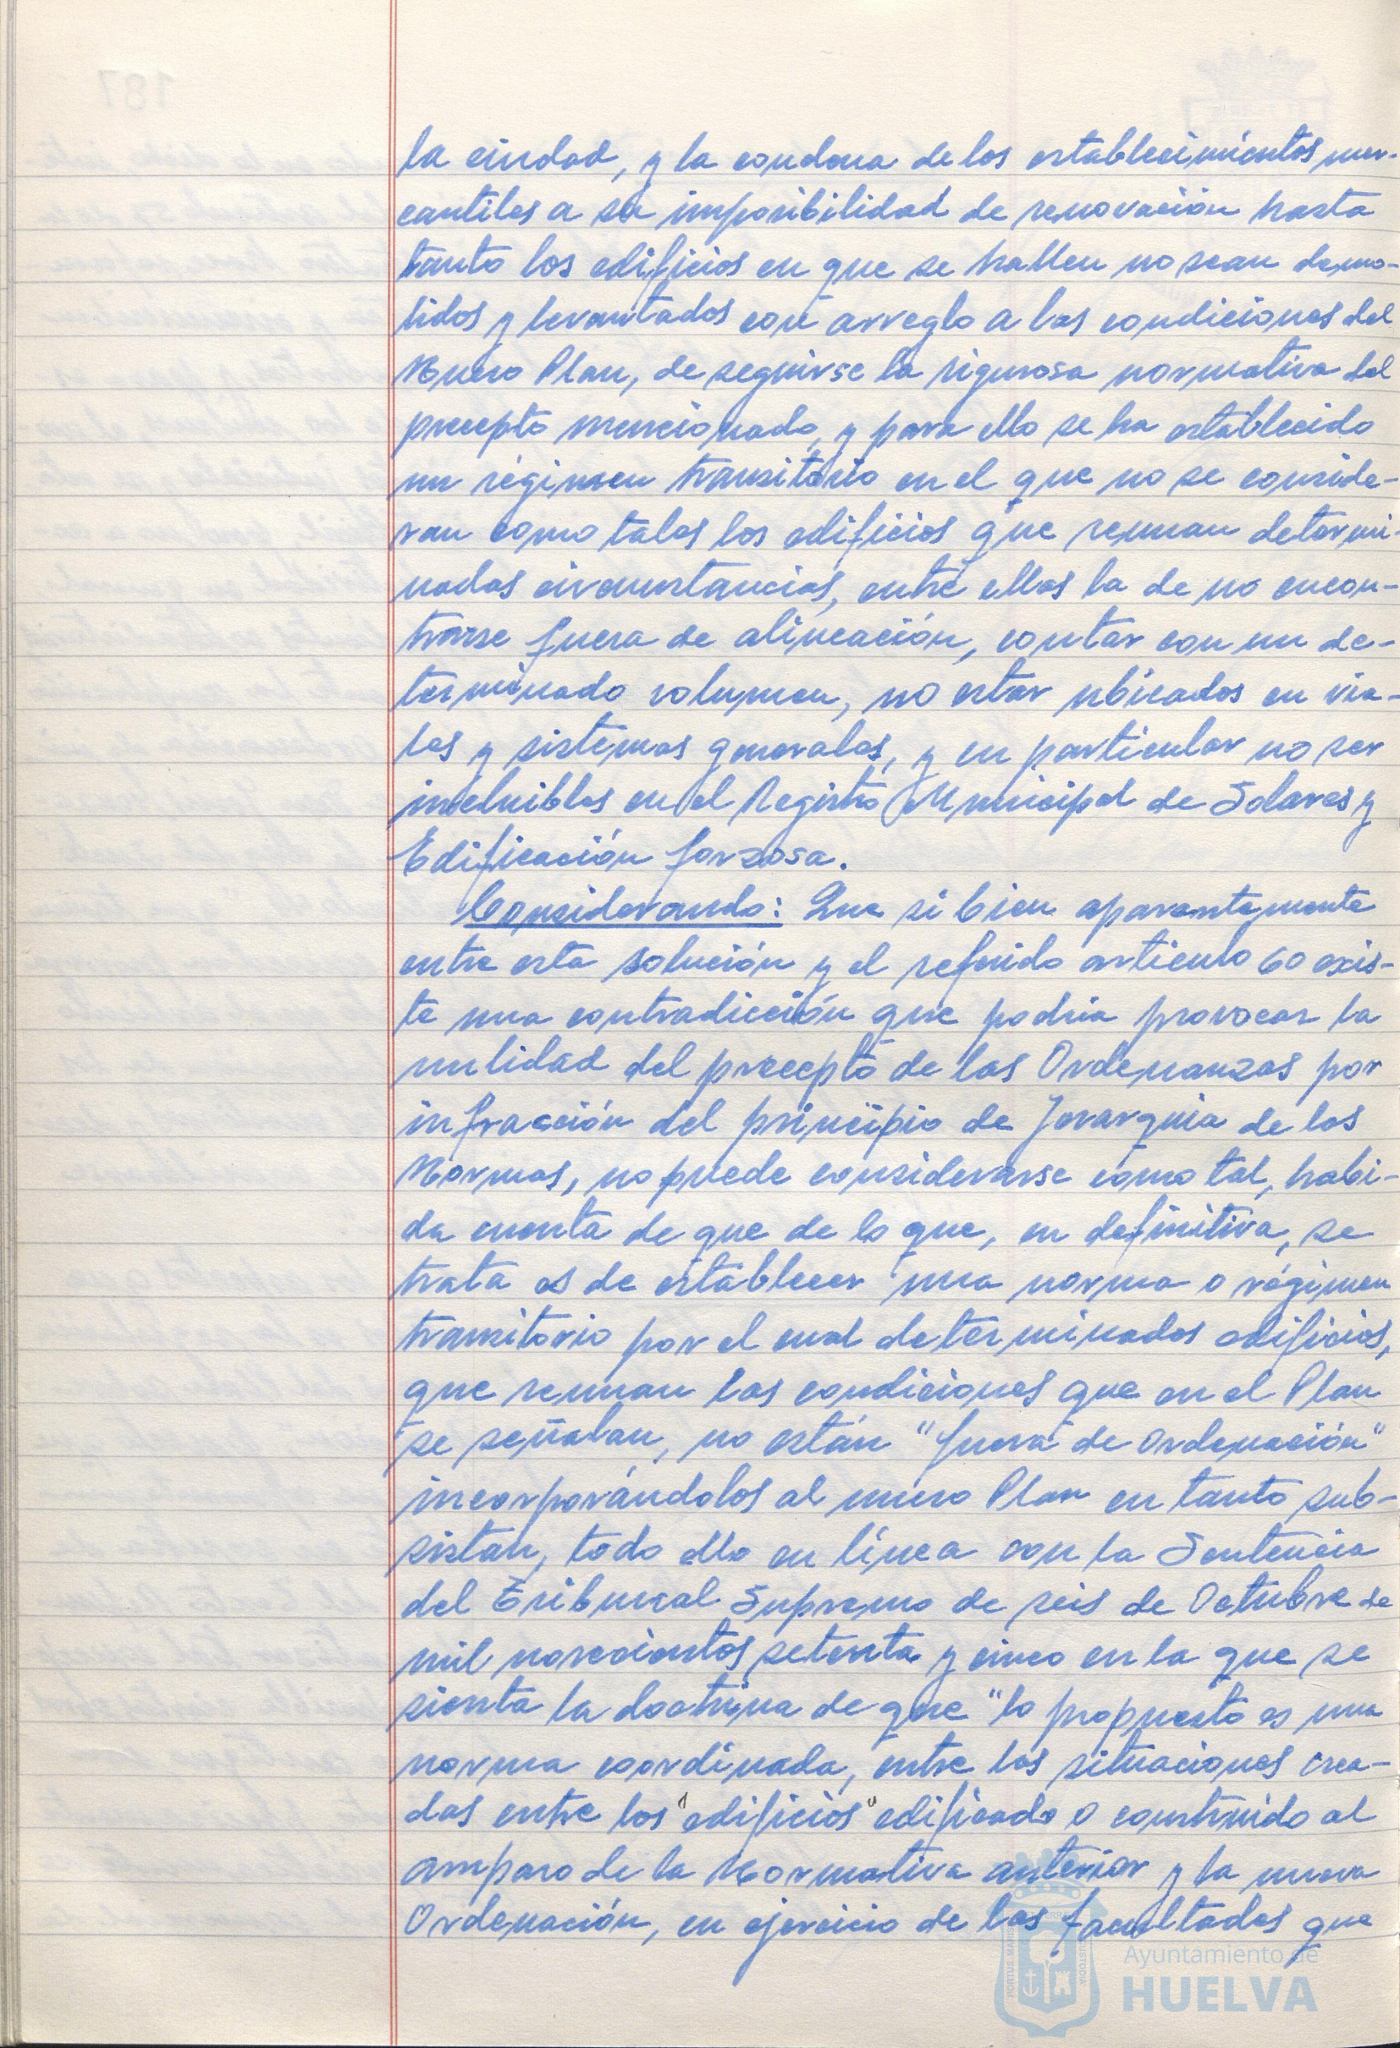 la ciudad, y la condena de los establecimientos mer-
cantiles a su imposibilidad de renovación hasta
tanto los edificios en que se hallen no sean demo-
lidos y levantados con arreglo a las condiciones del
Nuevo Plan, de seguirse la rigurosa normativa del
precepto mencionado, y para ello se ha establecido
un régimen transitorio en el que no se conside-
ran como tales los edificios que reunan determi-
nadas circunstancias, entre ellas la de no encon-
trarse fuera de alineación, contar con un de-
terminado volumen, no estar ubicados en via-
les y sistemas generales, y en particular no ser
incluibles en el Registro Municipal de Solares y
Edificación forzosa.
Considerando: Que si bien aparentemente
entre esta solución y el referido artículo 60 exis-
te una contradicción que podria provocar la
nulidad del precepto de las Ordenanzas por
infracción del principio de Jerarquia de las
Normas, no puede considerarse como tal, habi-
da cuenta de que de lo que, en definitiva, se
trata es de establecer una norma o régimen
transitorio por el cual determinados edificios,
que reunan las condiciones que en el Plan
se señalan, no están "fuera de ordenación"
incorporándolos al nuevo Plan en tanto sub-
sistan, todo ello en línea con la Sentencia
del Tribunal Supremo de seis de Octubre de
mil novecientos setenta y cinco en la que se
sienta la doctrina de que "lo propuesto es una
norma coordinada, entre las situaciones crea-
das entre los "edificios" edificado o construido al
amparo de la Normativa anterior y la nueva
Ordenación, en ejercicio de las facultades que
Ayuntamiento de
HUELVA